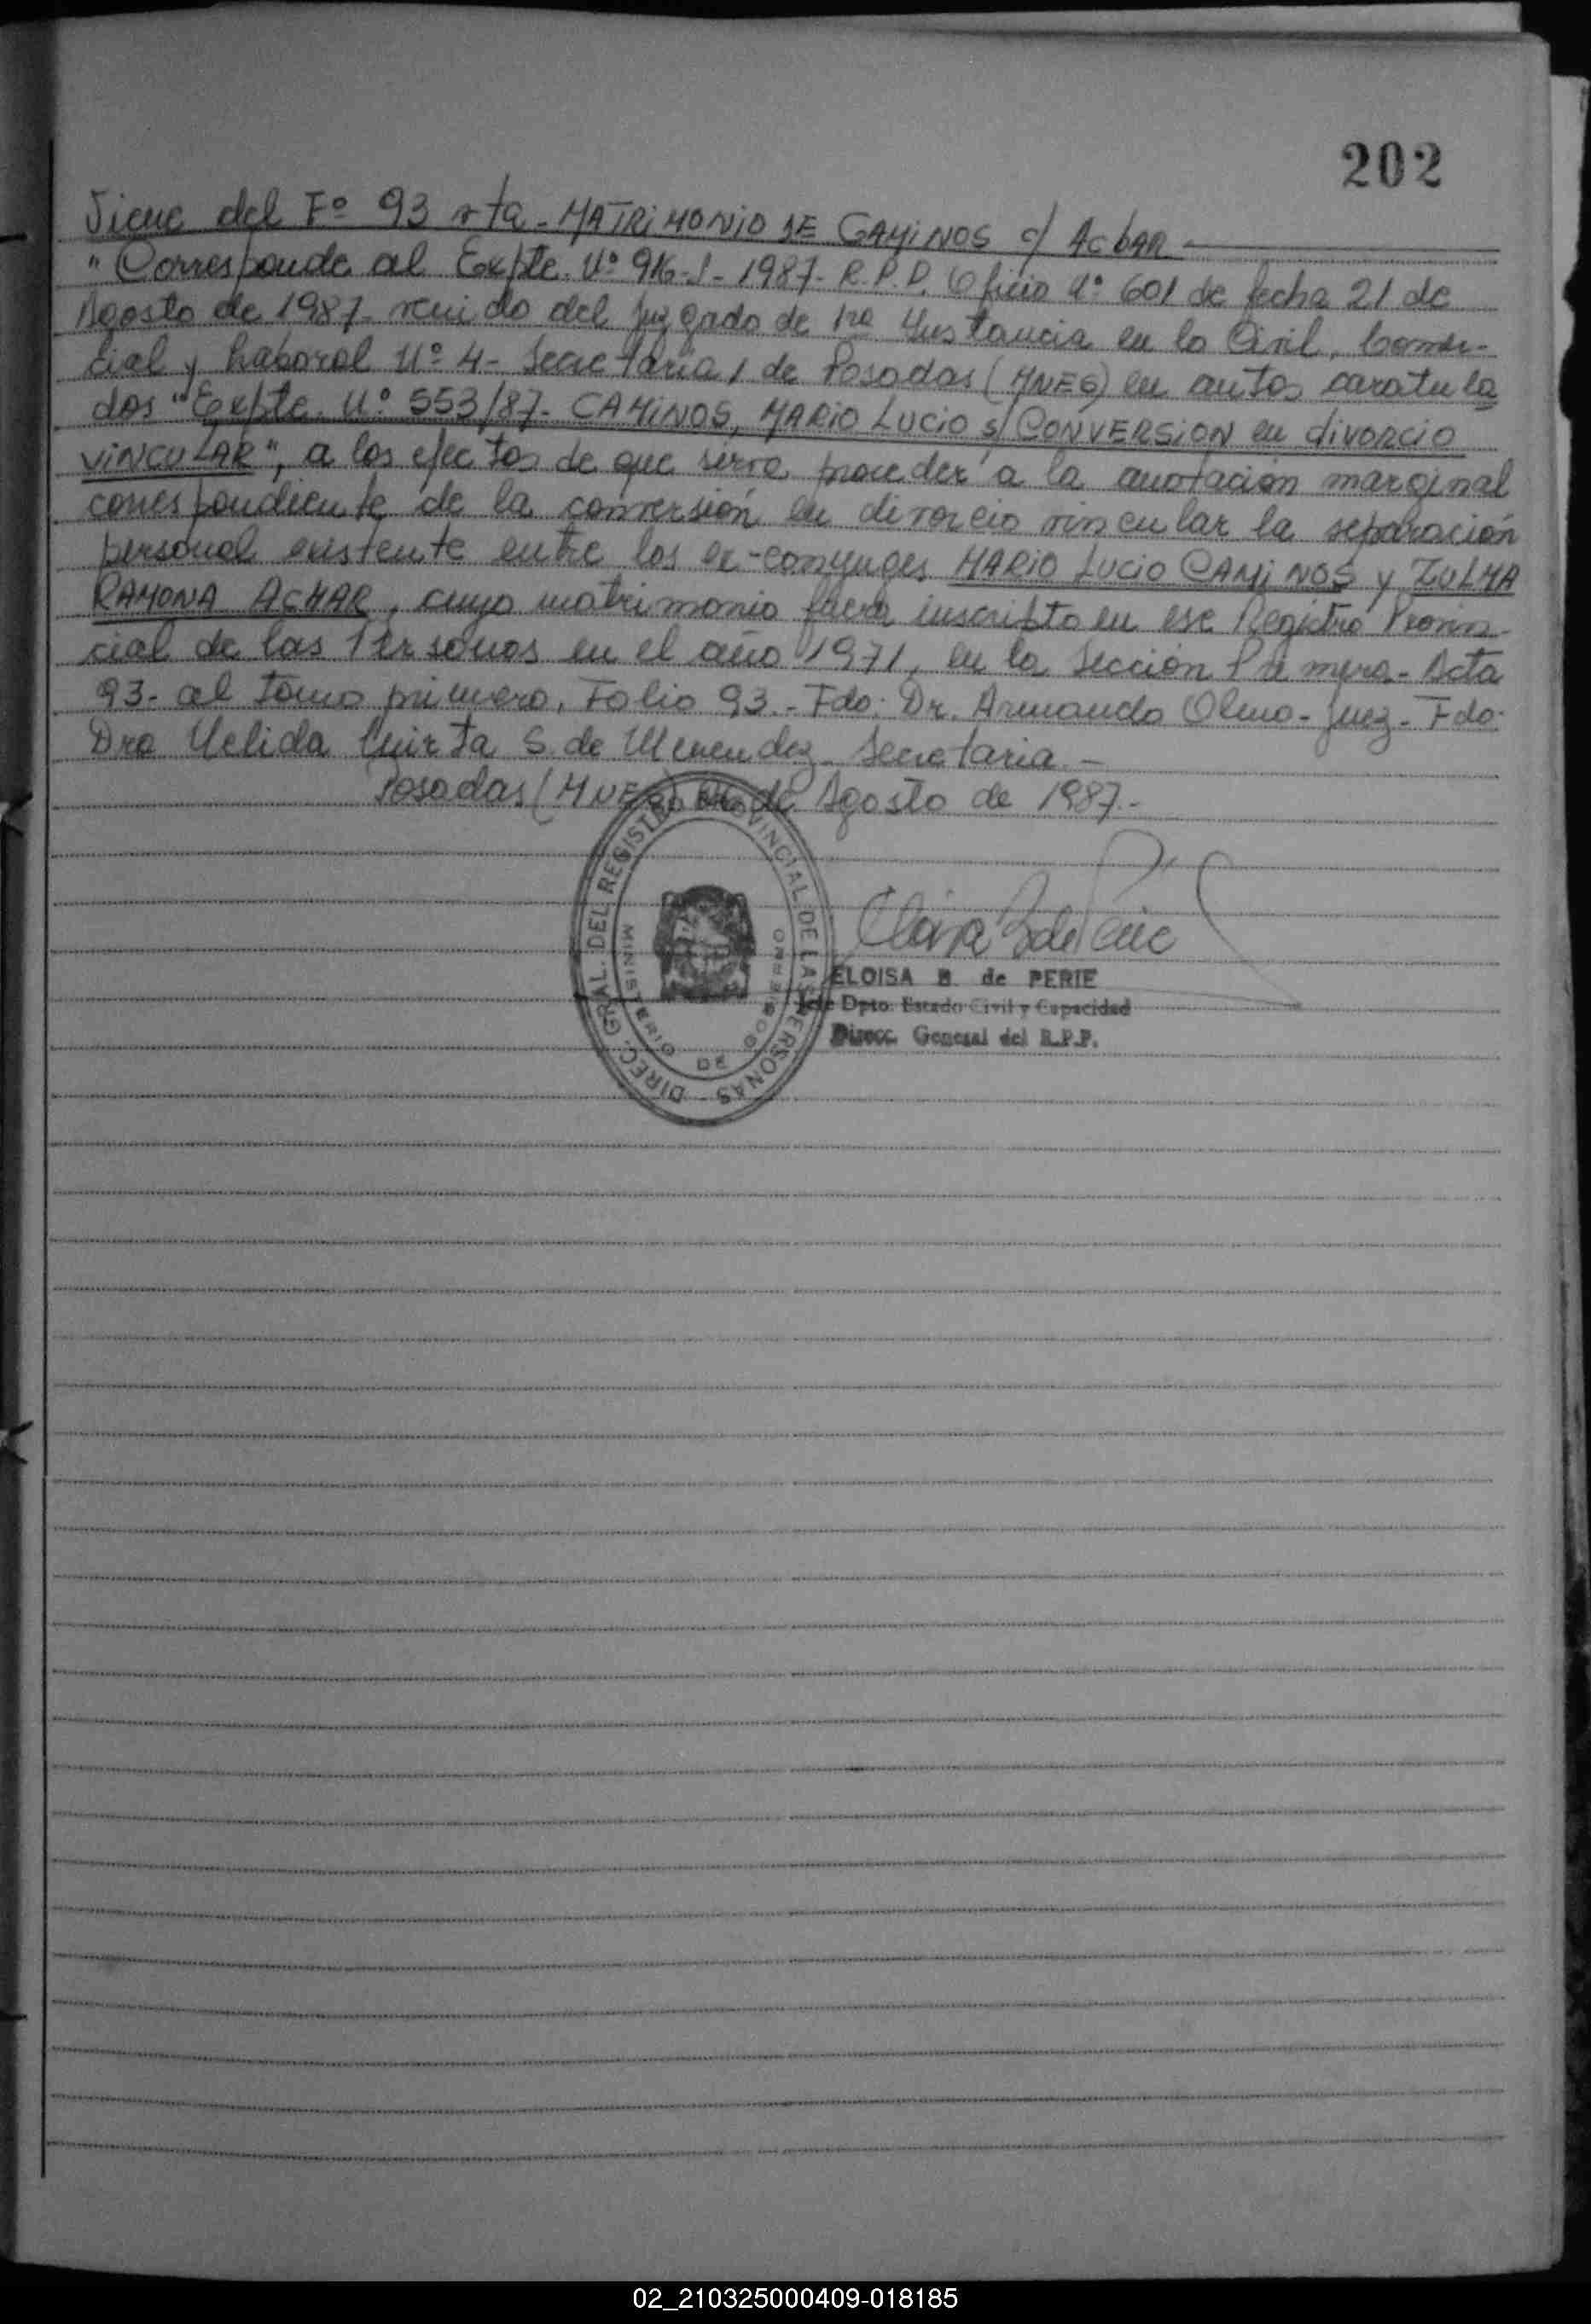 202
Viene del Fº 93 vta - MATRIMONIO DE CAMINOS c/ ACHAR
"Corresponde al Expte. Nº 916-J-1987- R.P.P. Oficio Nº 601 de fecha 21 de
Agosto de 1987- venido del Juzgado de 1ra Instancia en lo Civil, Comer-
cial y Laboral Nº 4- Secretaría 1 de Posadas (MNES) en autos caratula
dos "Expte. Nº 553/87- CAMINOS, MARIO LUCIO s/ CONVERSION en divorcio
VINCULAR", a los efectos de que sirva proceder a la anotación marginal
correspondiente de la conversión en divorcio vincular la separación
personal existente entre los ex-conyuges MARIO LUCIO CAMINOS y ZULMA
RAMONA ACHAR, cuyo matrimonio fuera inscripto en ese Registro Provin-
cial de las Personas en el año 1971, en la Sección Primera- Acta
93- al tomo primero, Folio 93.- Fdo: Dr. Armando Olmo- Juez- Fdo:
Dra Nelida S. de Menendez- Secretaria.-
Posadas (MNES) de Agosto de 1987.-
DIREC. GRAL. DEL REGISTRO PROVINCIAL DE LAS PERSONAS -
MINISTERIO DE GOBIERNO
ELOISA B. de PERIE
Jefe Dpto. Estado Civil y Capacidad
Direcc. General del R.P.P.
02_210325000409-018185